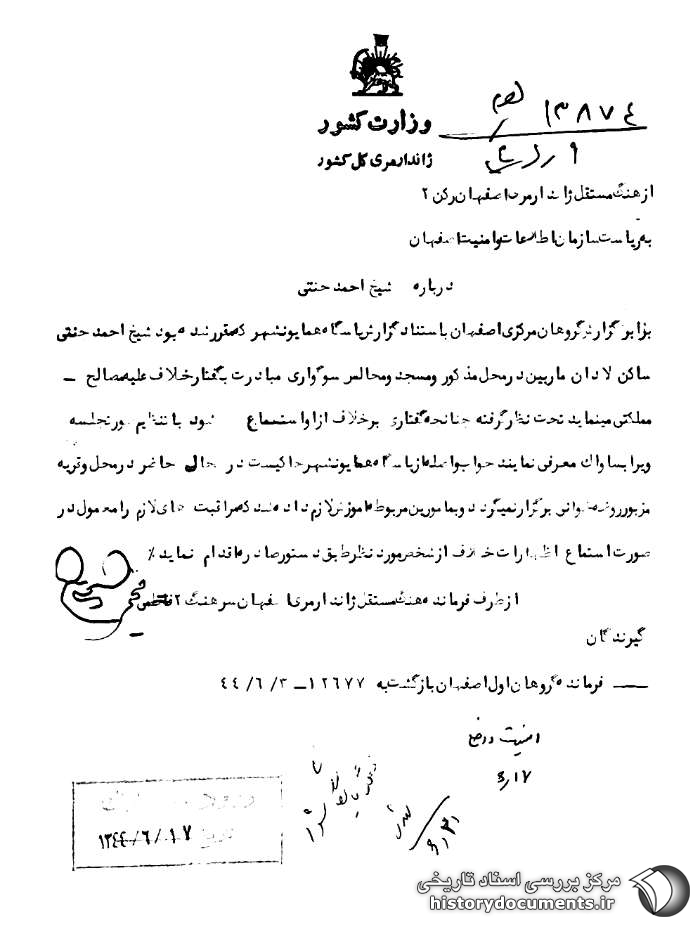 وزارت کشور
ژاندارمری کل کشور
۱۳۸۷٤
از هنگ مستقل ژاندارمری اصفهان رکن ۲
به ریاست سازمان اطلاعات و امنیت اصفهان
درباره شیخ احمد حنتی
بنا بر گزارش گروهان مرکزی اصفهان باستناد گزارش پاسگاه همایونشهر که مقرر شده بود شیخ احمد حنتی
ساکن لادان ماربین در محل مذکور و مسجد و مجالس سوگواری مبادرت بگفتار خلاف علیه مصالح –
مملکتی مینماید تحت نظر گرفته چنانچه گفتاری برخلاف از او استماع شود با تنظیم صورتجلسه
ویرا بساواک معرفی نمایند جواب واصله از پاسگاه همایونشهر حاکیست در حال حاضر در محل و قریه
مزبور روضه خوانی برگزار نمیگردد و بمامورین مربوطه آموزش لازم داده شد که مراقبت های لازم را معمول در
صورت استماع اظهارات خلاف از شخص مورد نظر طبق دستور صادره اقدام نماید٪
از طرف فرمانده هنگ مستقل ژاندارمری اصفهان سرهنگ ۲ فاطمی
گیرندگان
— فرمانده گروهان اول اصفهان بازگشت به ۱۲٦۷۷ – ۳/٦/٤٤
امنیت داخلی
٦/۱۷
۱۳٤٤/٦/۱۷
تاریخ
مرکز بررسی اسناد تاریخی
historydocuments.ir